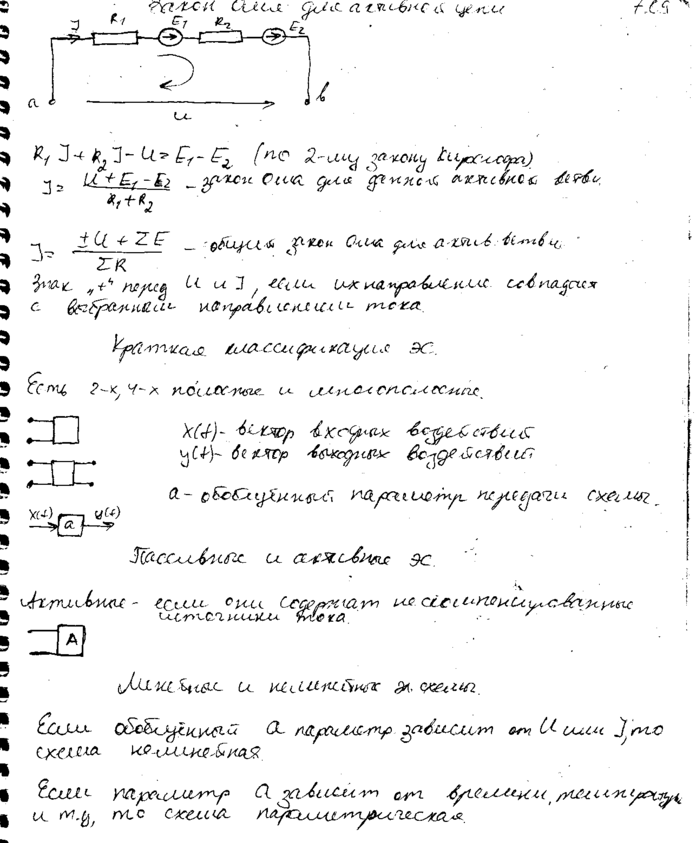 Закон Ома для активной цепи
I R₁ E₁ R₂ E₂
a b
U
R₁ I + R₂ I - U = E₁ - E₂ (по 2-му закону Кирхгофа)
I = (U + E₁ - E₂) / (R₁ + R₂) - закон Ома для данной активной ветви.
I = (±U + ΣE) / ΣR - общий закон Ома для актив. ветви
Знак „+" перед U и I, если их направление совпадает
с выбранным направлением тока.
Краткая классификация эс.
Есть 2-х, 4-х полюсные и многополюсные.
x(t) - вектор входных воздействий
y(t) - вектор выходных воздействий
a - обобщённый параметр передачи схемы.
x(t) a y(t)
Пассивные и активные эс.
Активные - если они содержат нескомпенсированные
источники тока.
A
Линейные и нелинейные эл. схемы.
Если обобщённый a параметр зависит от U или I, то
схема нелинейная.
Если параметр a зависит от времени, температуры
и т.д, то схема параметрическая.